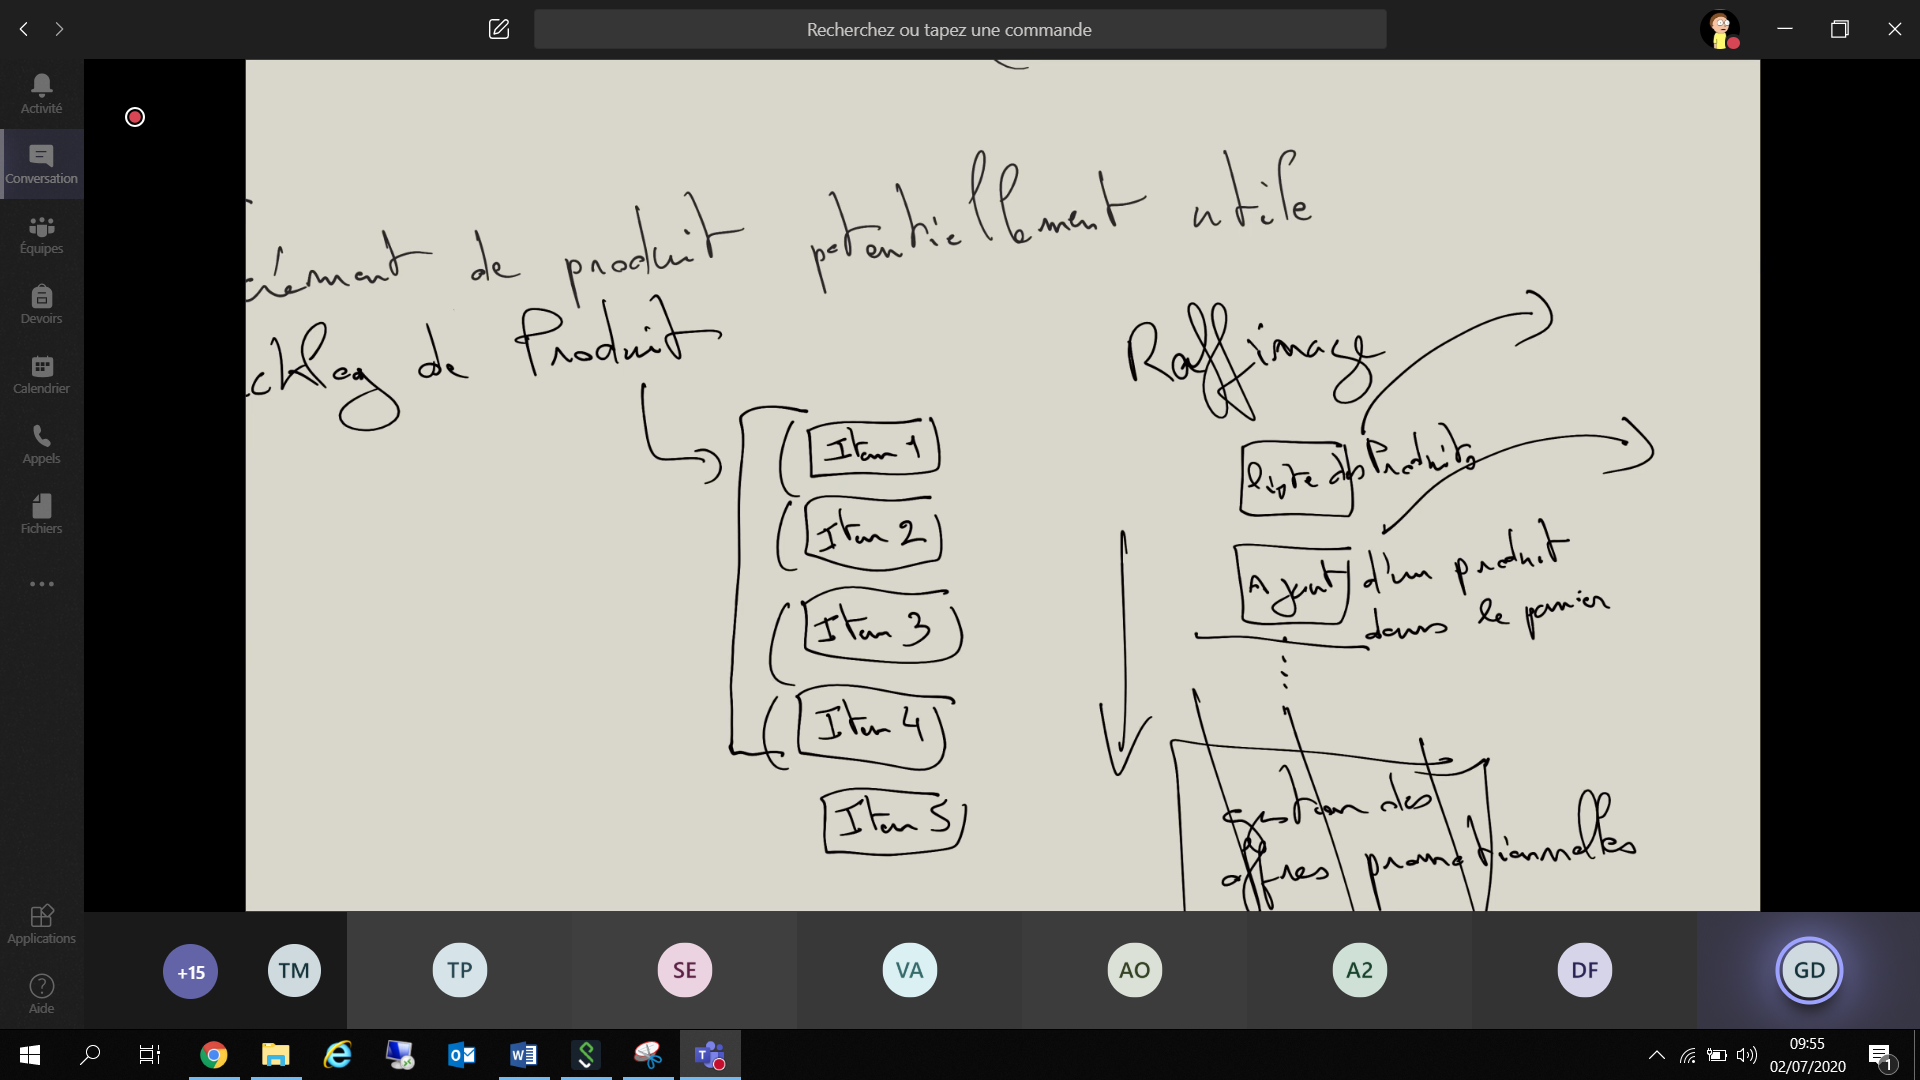 Recherchez ou tapez une commande
Activité
Conversation
Équipes
Devoirs
Calendrier
Appels
Fichiers
Applications
Aide
rément de produit potentiellement utile
cklog de Produit
Item 1
Item 2
Item 3
Item 4
Item 5
Raffimage
liste des Produits
Ajout d'un produit
dans le panier
gestion des
offres promotionnelles
+15
TM
TP
SE
VA
AO
A2
DF
GD
09:55
02/07/2020
1